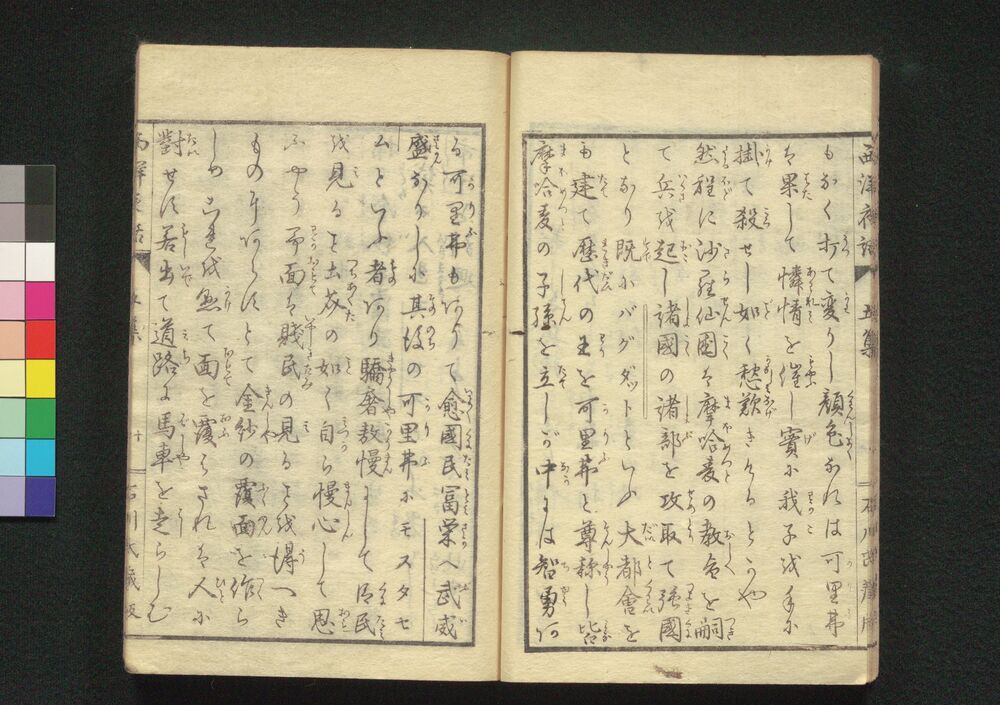 もなく打て変りし顔色なれは可里弗
は果して憐情を催し實に我子を手に
掛て殺せし如く愁歎きけるとかや
然程に沙羅仙國は摩哈麦の教令を嗣
て兵を起し諸國の諸部を攻取て強國
となり既にバグダットといふ大都會を
も建て歴代の王を可里弗と尊称し皆
摩哈麦の子孫を立しが中には智勇
る可里弗もありて愈國民富栄へ武威
盛なりしに其後の可里弗にモスタセ
ムといふ者あり驕奢敖慢にして
を見ること土芥の如く自ら慢心して思
ふやう吾面は賤民の見ることを得へき
ものにあらすとて金紗の覆面を作ら
しめ 面を覆 人に
對せす若出て道路に馬車を走らしむ
五集
石川氏蔵版